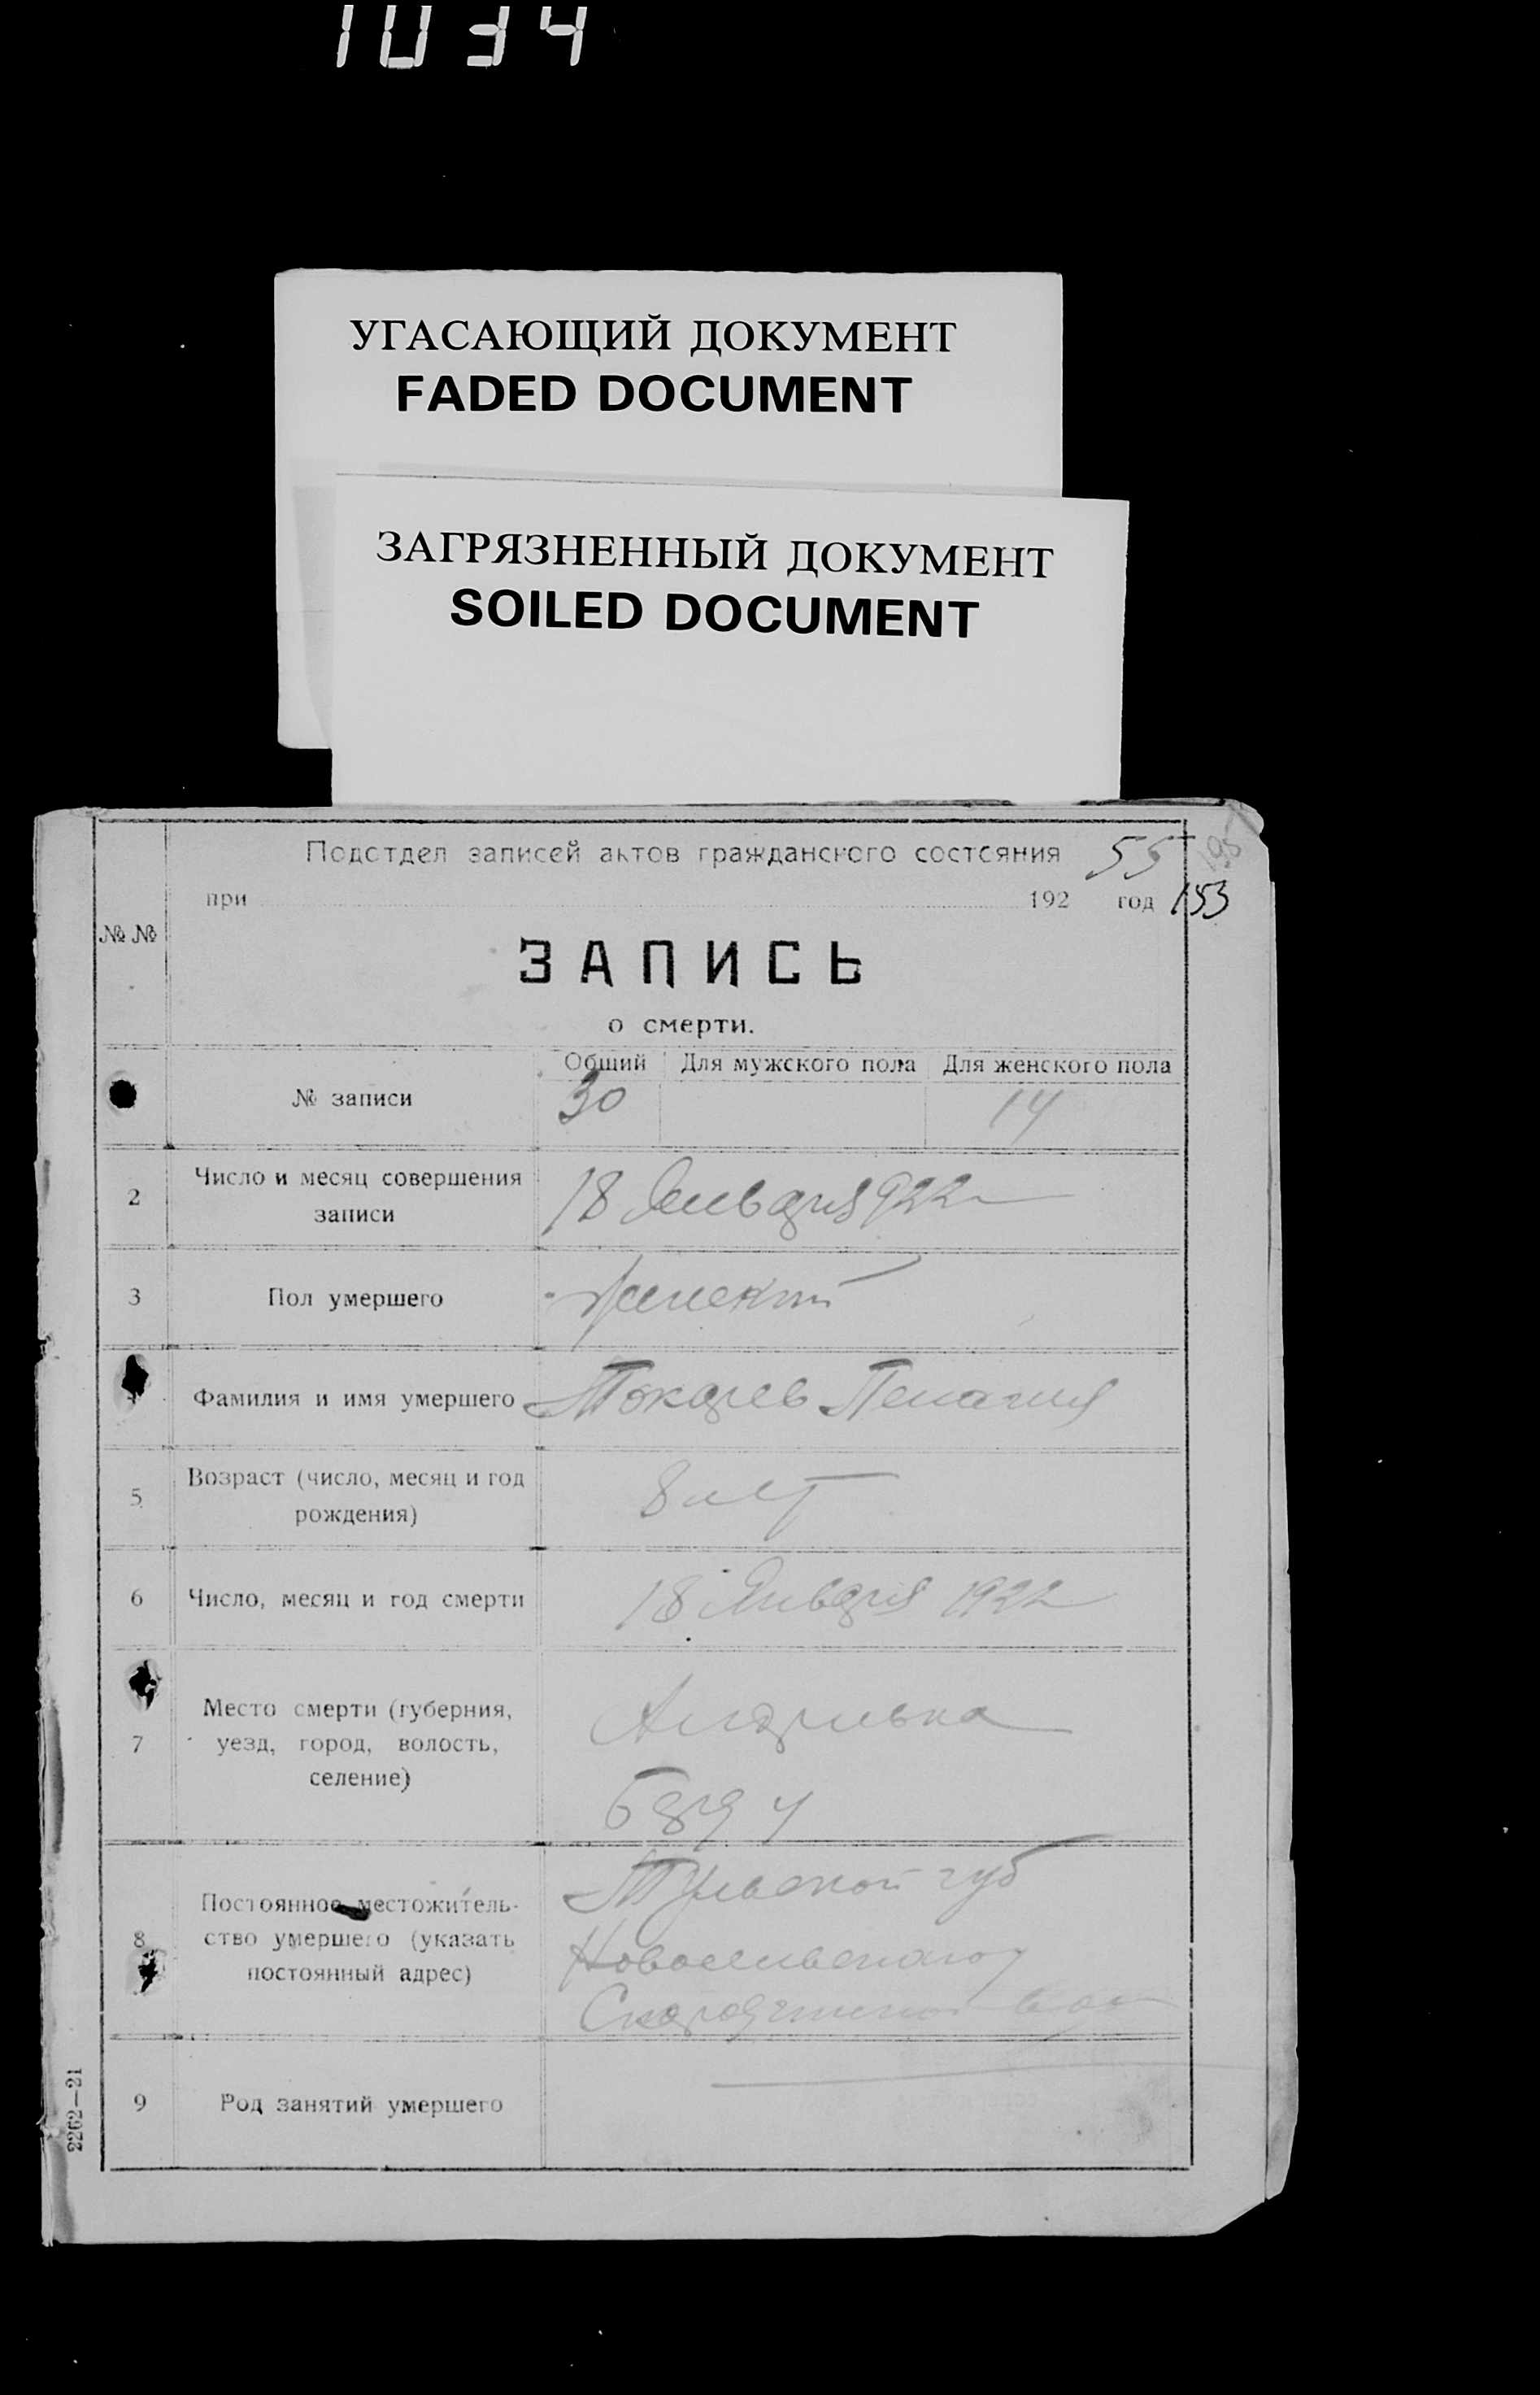 1034
УГАСАЮЩИЙ ДОКУМЕНТ
FADED DOCUMENT
ЗАГРЯЗНЕННЫЙ ДОКУМЕНТ
SOILED DOCUMENT
Подотдел записей актов гражданского состояния 55
при 192 год 153
№ №
ЗАПИСЬ
о смерти.
Общий Для мужского пола Для женского пола
№ записи 30 14
2 Число и месяц совершения
записи
18 Января 922
3 Пол умершего женский
Фамилия и имя умершего Токарев Пелагия
5 Возраст (число, месяц и год
рождения)
8 лет
6 Число, месяц и год смерти 18 Января 1922
7 Место смерти (губерния,
уезд, город, волость,
селение)
8 Постоянное местожитель-
ство умершего (указать
постоянный адрес)
Тульской губ
Новосильского у
9 Род занятий умершего
2262—21